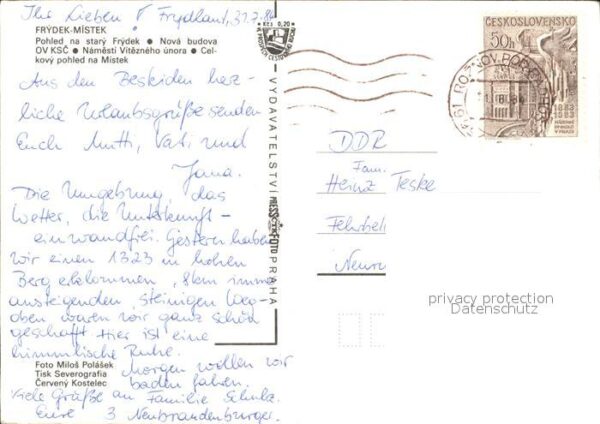 Ihr Lieben! Frydlant, 31.7.84
FRÝDEK-MÍSTEK
Pohled na starý Frýdek • Nová budova
OV KSČ • Náměstí Vítězného února • Cel-
kový pohled na Místek
Kčs 0,20
Aus den Beskiden herz-
liche Urlaubsgrüße senden
Euch Mutti, Vati und
Jana.
Die Umgebung, das
Wetter, die Unterkunft –
einwandfrei. Gestern haben
wir einen 1323 m hohen
Berg erklommen, 8km immer
ansteigenden, steinigen Weg –
oben waren wir ganz schön
geschafft. Hier ist eine
himmlische Ruhe.
Morgen wollen wir
baden fahren.
Viele Grüße an Familie Schulz.
Eure 3 Neubrandenburger.
Foto Miloš Polášek
Tisk Severografia
Červený Kostelec
VYDAVATELSTVÍ PRESSFOTO PRAHA
ČESKOSLOVENSKO
50h
1883
1983
NÁRODNÍ
DIVADLO
V PRAZE
ROŽNOV POD RADH
DDR
Fam.
Heinz Teske
Fehrbell
Neuru
privacy protection
Datenschutz